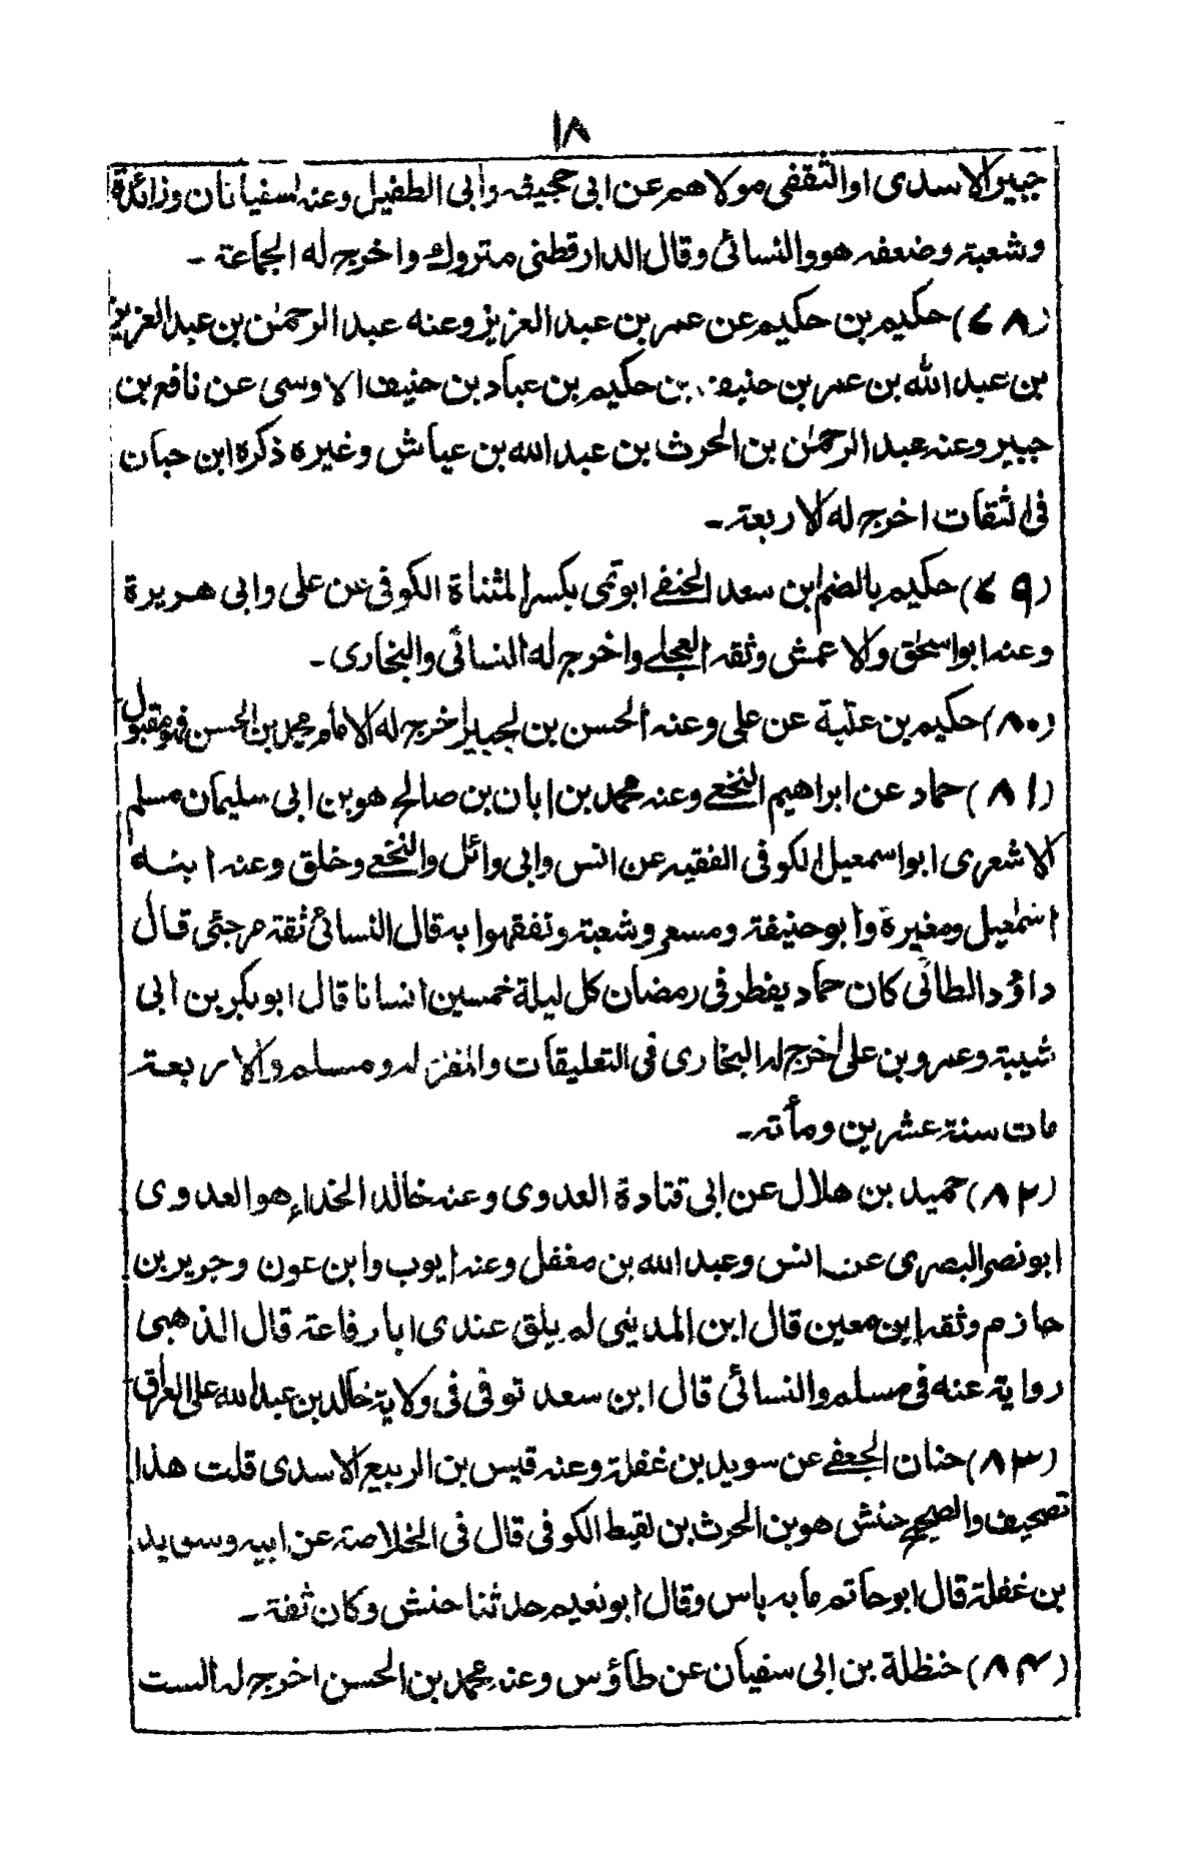 ١٨
جبير الاسدى او الثقفى مولاهم عن ابى جحيفه وابى الطفيل وعنه السفيانان وزائدة
وشعبة وضعفه هو والنسائى وقال الدارقطنى متروك واخرج له الجماعة ۔
(٧٨) حكيم بن حكيم عن عمر بن عبد العزيز وعنه عبد الرحمٰن بن عبد العزيز
بن عبد الله بن عمر بن حنيف، بن حكيم بن عباد بن حنيف الاوسى عن نافع بن
جبير وعنه عبد الرحمٰن بن الحرث بن عبد الله بن عياش وغيره ذكره ابن حبان
فى الثقات اخرج له الاربعة ۔
(٧٩) حكيم بالضم ابن سعد الحنفى ابو تحى بكسر المثناة الكوفى عن على وابى هريرة
وعنه ابو اسحٰق والاعمش وثقه العجلى واخرج له النسائى والبخارى ۔
(٨٠) حكيم بن عتبة عن على وعنه الحسن بن لجبير اخرج له الامام محمد بن الحسن فهو مقبول
(٨١) حماد عن ابراهيم النخعى وعنه محمد بن ابان بن صالح هو بن ابى سليمان مسلم
الاشعرى ابو اسمعيل الكوفى الفقيه عن انس وابى وائل والنخعى وخلق وعنه ابنه
اسمٰعيل ومغيرة وابو حنيفة ومسعر وشعبة وتفقهوا به قال النسائى ثقة مرجئى قال
داؤد الطائى كان حماد يفطر فى رمضان كل ليلة خمسين انسانا قال ابو بكر بن ابى
شيبة وعمرو بن على اخرج له البخارى فى التعليقات والمفرد له ومسلم والاربعة
مات سنة عشرين ومأته ۔
(٨٢) حميد بن هلال عن ابى قتادة العدوى وعنه خالد الحذاء هو العدوى
ابو نصر البصرى عن انس وعبد الله بن مغفل وعنه ايوب وابن عون وجرير بن
حازم وثقه ابن معين قال ابن المدينى لم يلق عندى ابا رفاعة قال الذهبى
رواية عنه فى مسلم والنسائى قال ابن سعد توفى فى ولاية خالد بن عبد الله على العراق
(٨٣) حنان الجعفى عن سويد بن غفلة وعنه قيس بن الربيع الاسدى قلت هذا
تصحيف والصحيح حنش هو بن الحرث بن لقيط الكوفى قال فى الخلاصة عن ابيه وسويد
بن غفلة قال ابو حاتم ما به باس وقال ابو نعيم حدثنا حنش وكان ثقة ۔
(٨٤) حنظلة بن ابى سفيان عن طاؤس وعنه محمد بن الحسن اخرج له الست